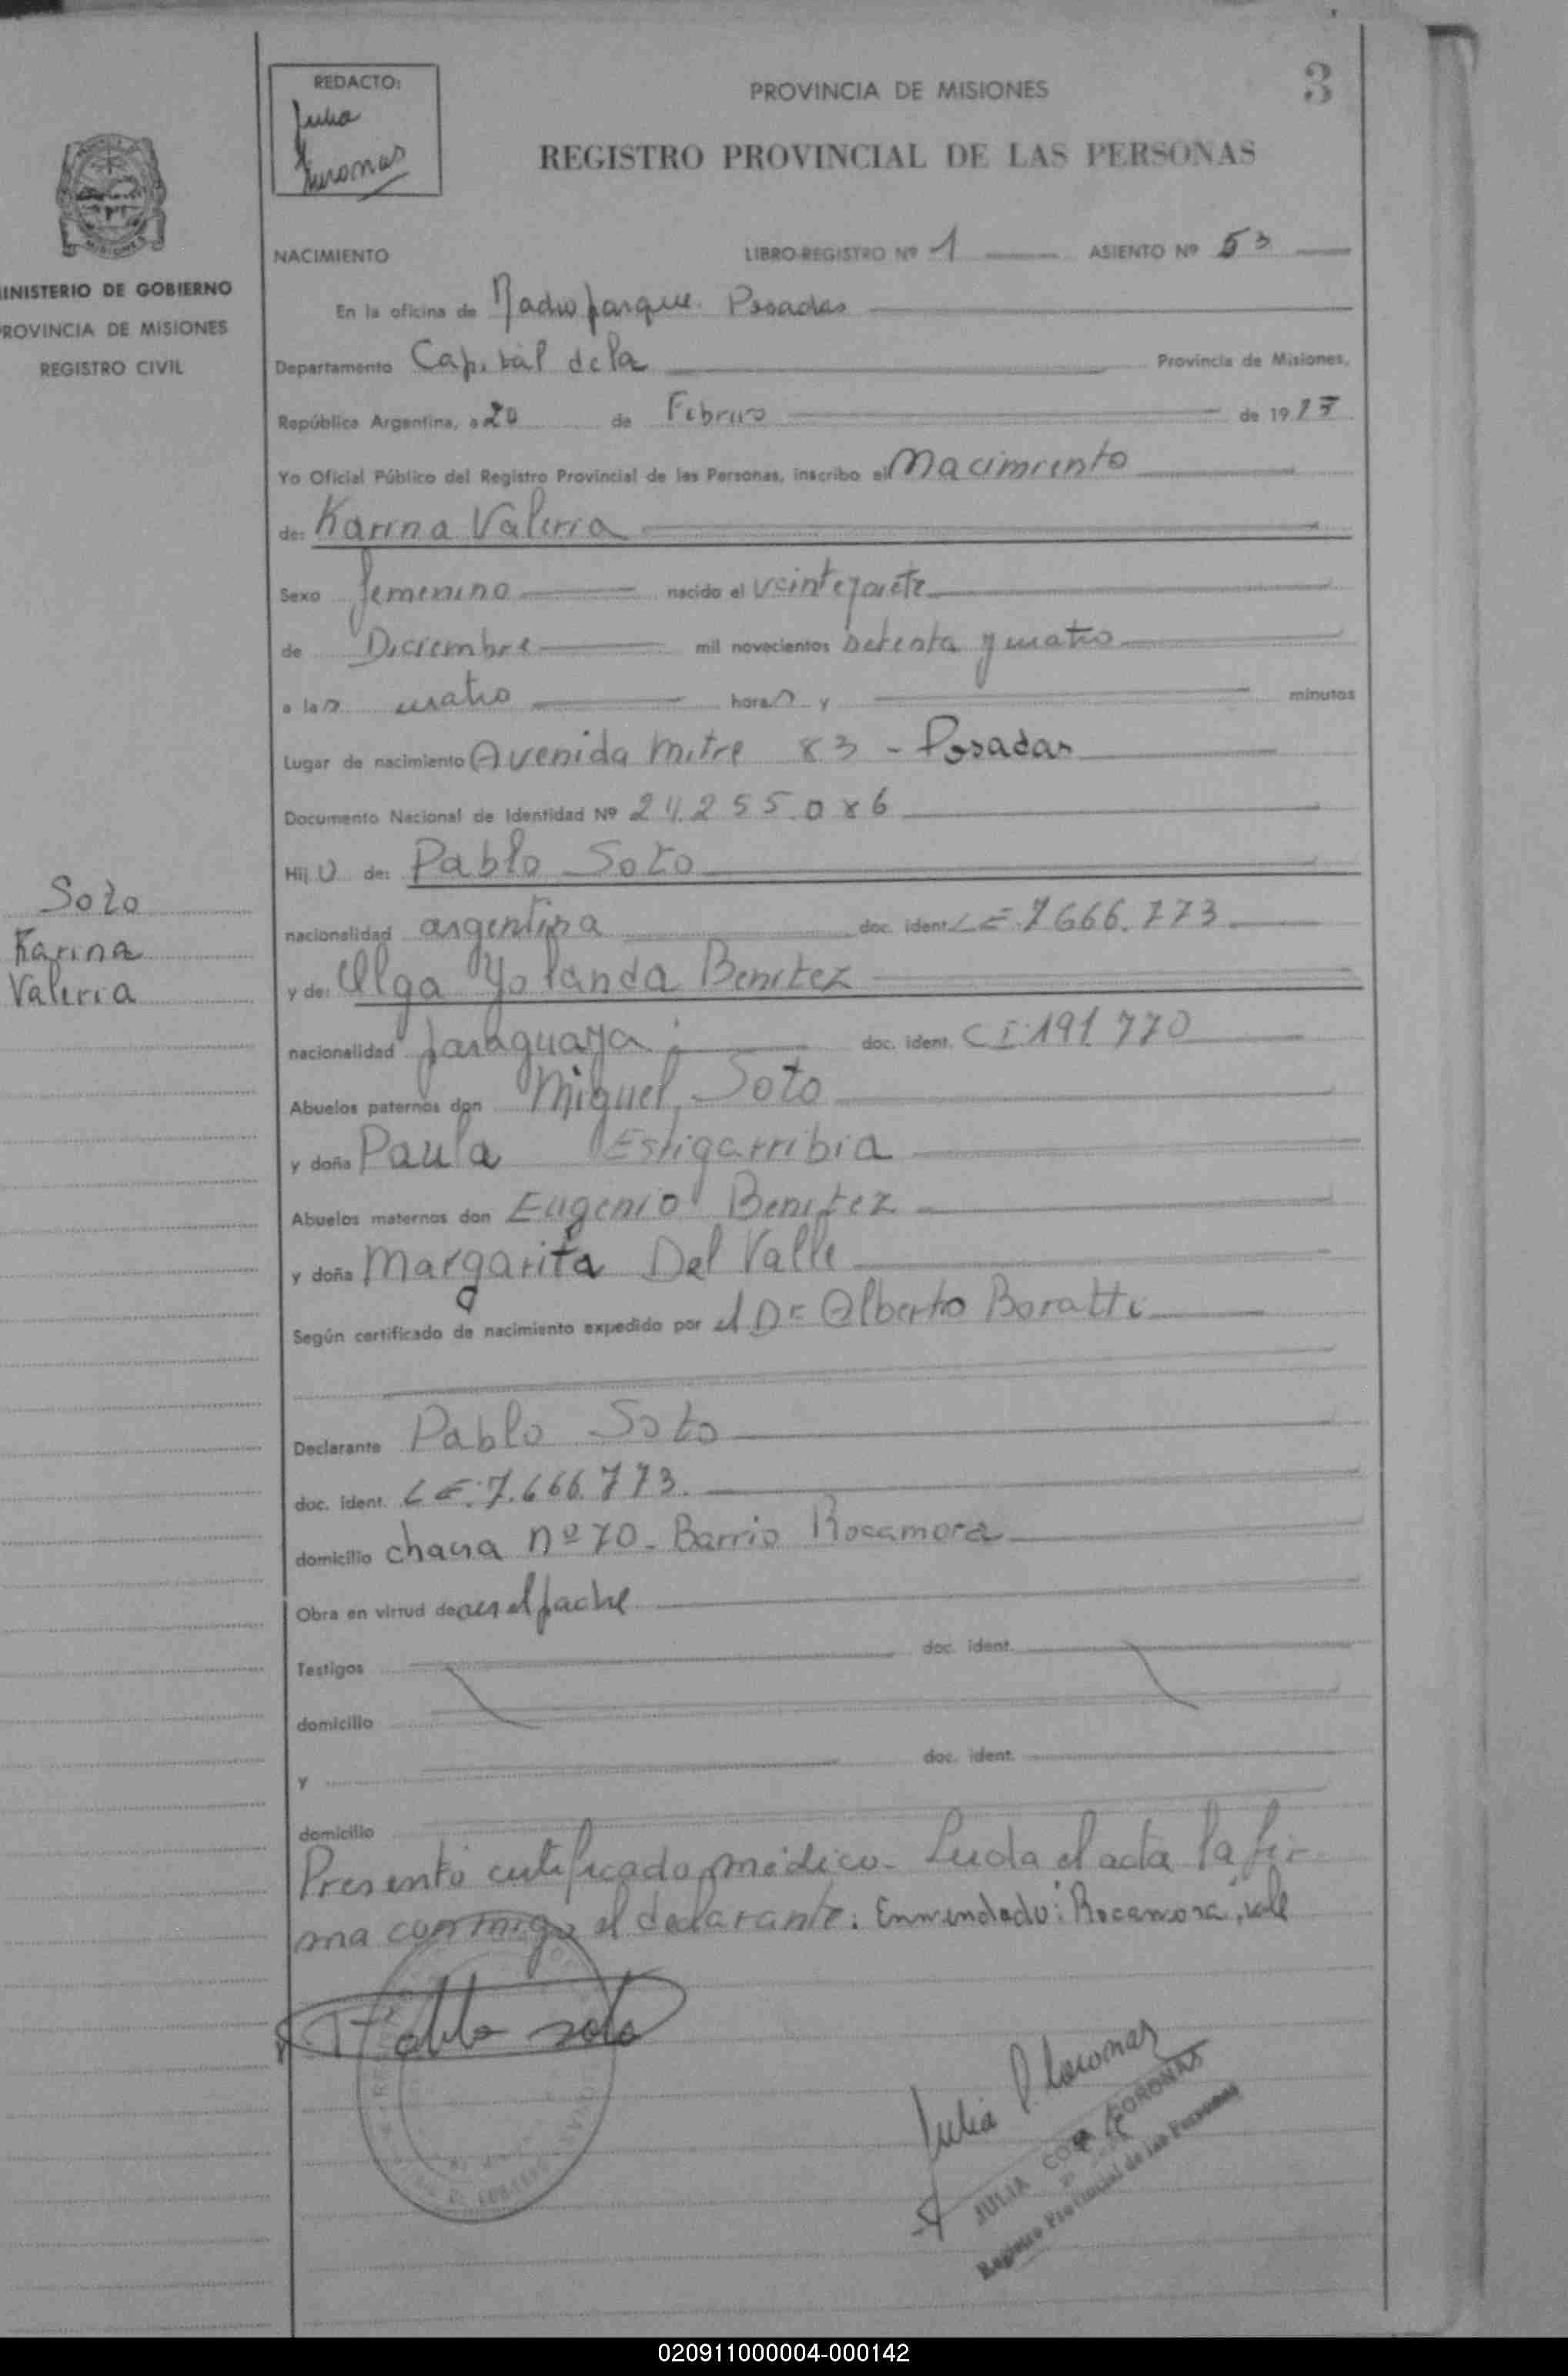 REDACTO:
Julia
Coronas
PROVINCIA DE MISIONES
3
REGISTRO PROVINCIAL DE LAS PERSONAS
MINISTERIO DE GOBIERNO
PROVINCIA DE MISIONES
REGISTRO CIVIL
NACIMIENTO LIBRO-REGISTRO Nº 1 ASIENTO Nº 53
En la oficina de Posadas
Departamento Capital de la Provincia de Misiones,
República Argentina, a 20 de Febrero de 19
Yo Oficial Público del Registro Provincial de las Personas, inscribo el Nacimiento
de: Karina Valeria
Sexo femenino nacido el
de Diciembre mil novecientos setenta y cuatro
a las cuatro horas y minutos
Lugar de nacimiento Avenida Mitre 83 - Posadas
Documento Nacional de Identidad Nº 24.255.086
Hij de: Pablo Soto
nacionalidad argentina doc. ident. LE 7666.773
y de: Olga Yolanda Benitez
nacionalidad paraguaya doc. ident. CI 191.770
Abuelos paternos don Miguel Soto
y doña Paula Estigarribia
Abuelos maternos don Eugenio Benitez
y doña Margarita Del Valle
Según certificado de nacimiento expedido por el Dr Alberto Boratti
Soto
Karina
Valeria
Declarante Pablo Soto
doc. ident. LE. 7.666.773.
domicilio chacra nº 70 - Barrio Rocamora
Obra en virtud de ser el padre
Testigos doc. ident.
domicilio
y doc. ident.
domicilio
Presentó certificado médico. Leida el acta la fir-
ma conmigo el declarante: Enmendado: "Rocamora", vale
Pablo soto
Julia Coronas
JULIA CORONAS
Registro Provincial de las Personas
020911000004-000142